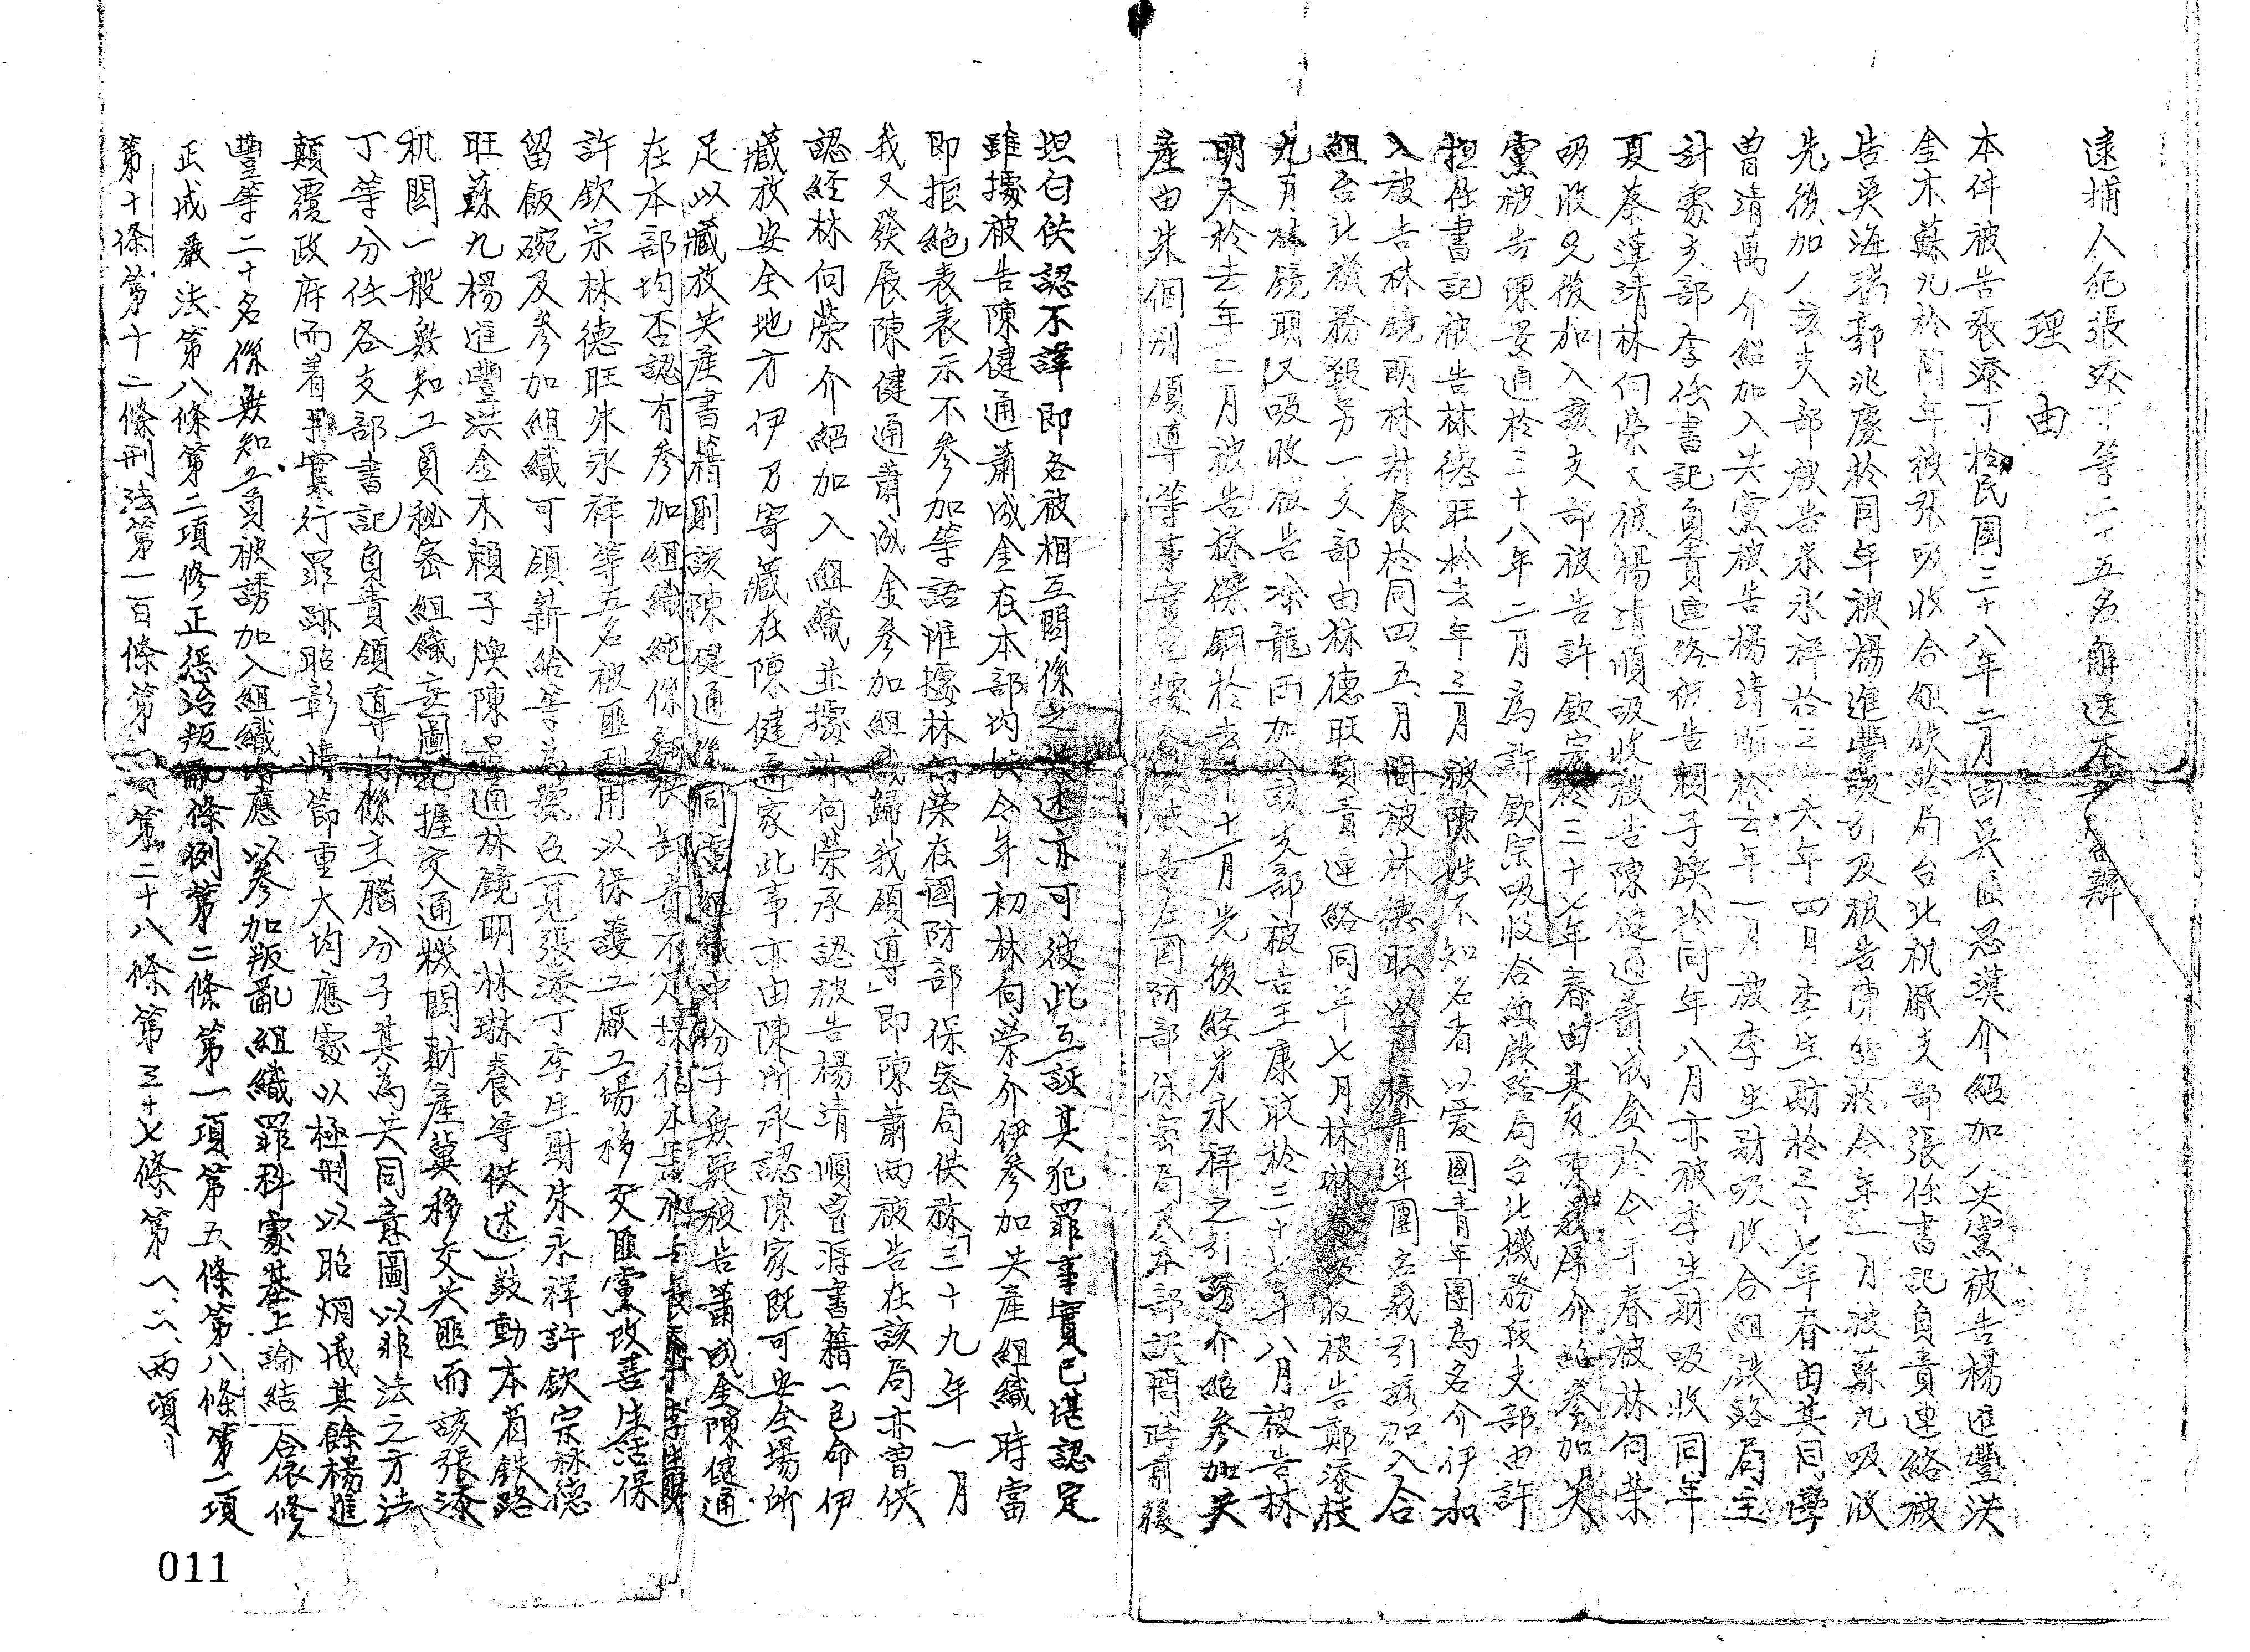 逮捕人犯張添丁等二十五名解送本部審辦
理由
本件被告張添丁於民國三十八年二月由吳匪思漢介紹加入共黨被告楊進豐洪
金木蘇九於同年被張吸收合組鉄路局台北机厰支部張任書記負責連絡被
告吳海瑞郭兆慶於同年被楊進豐吸引及被告陳 於今年一月被蘇九吸收
先後加入該支部被告朱永祥於三十六年四月李生財於三十七年春由其同學
曾靖萬介紹加入共黨被告楊靖 於去年一月被李生財吸收合組鉄路局主
計處支部李任書記負責連絡被告賴子煥於同年八月亦被李生財吸收同年
夏蔡漢清林向榮又被楊清順吸收被告陳健通蕭成金於今年春被林向榮
吸收先後加入該支部被告許欽宗於三十七年春由其友陳 厚介紹參加共
黨被告陳景通於三十八年二月為許欽宗吸收合組鉄路局台北機務段支部由許
担任書記被告林德旺於去年三月被陳姓不知名者以愛國青年團為名介伊加
入被告林鏡明林琳養於同四、五、月間被林德旺以 樣青年團名義引誘加入合
組台北機務段另一支部由林德旺負責連絡同年七月林琳養吸收被告鄭添枝
九月林鏡明又吸收被告涂龍西加入該支部被告王康旼於三十七年八月被告林
明木於去年二月被告林傑鋼於去年十一月先後經朱永祥之引誘介紹參加共
產由朱個別領導等事實已據 被告在國防部保密局及本部訊問時前後
坦白供認不諱即各被相互關係之供述亦可彼此互証其犯罪事實已堪認定
雖據被告陳健通蕭成金在本部均供今年初林向榮介伊參加共產組織時當
即拒絕表表示不參加等語惟據林向榮在國防部保密局供称「三十九年一月
我又發展陳健通蕭成金參加組織歸我領導」即陳蕭兩被告在該局亦曾供
認經林向榮介紹加入組織並據林向榮承認被告楊清順曾將書籍一包命伊
藏放安全地方伊乃寄藏在陳健通家此事亦由陳所承認陳家既可安全場所
足以藏放共產書籍則該陳健通後同屬組織中份子無疑被告蕭成金陳健通
在本部均否認有參加組織純係飜表卸責不足採信本 李生財
許欽宗林德旺朱永祥等五名被匪利用以保護工厰工場移交匪黨改善生活保
留飯碗及參加組織可領薪給等為號召（見張添丁李生財朱永祥許欽宗林德
旺蘇九楊進豐洪金木賴子煥陳景通林鏡明林琳養等供述）鼓動本省鉄路
机関一般無知工員秘密組織妄圖把握交通機関財產冀移交共匪而該張添
丁等分任各支部書記負責領導均係主腦分子其為共同意圖以非法之方法
顛覆政府而着手實行罪跡昭彰情節重大均應處以極刑以昭烱戒其餘楊進
豐等二十名係無知工員被誘加入組織均應以參加叛亂組織罪科處基上論結合依修
正戒嚴法第八條第二項修正懲治叛亂條例第二條第一項第五條第八條第一項
第十條第十二條刑法第二百條第一項第二十八條第三十七條第一、二、兩項
011